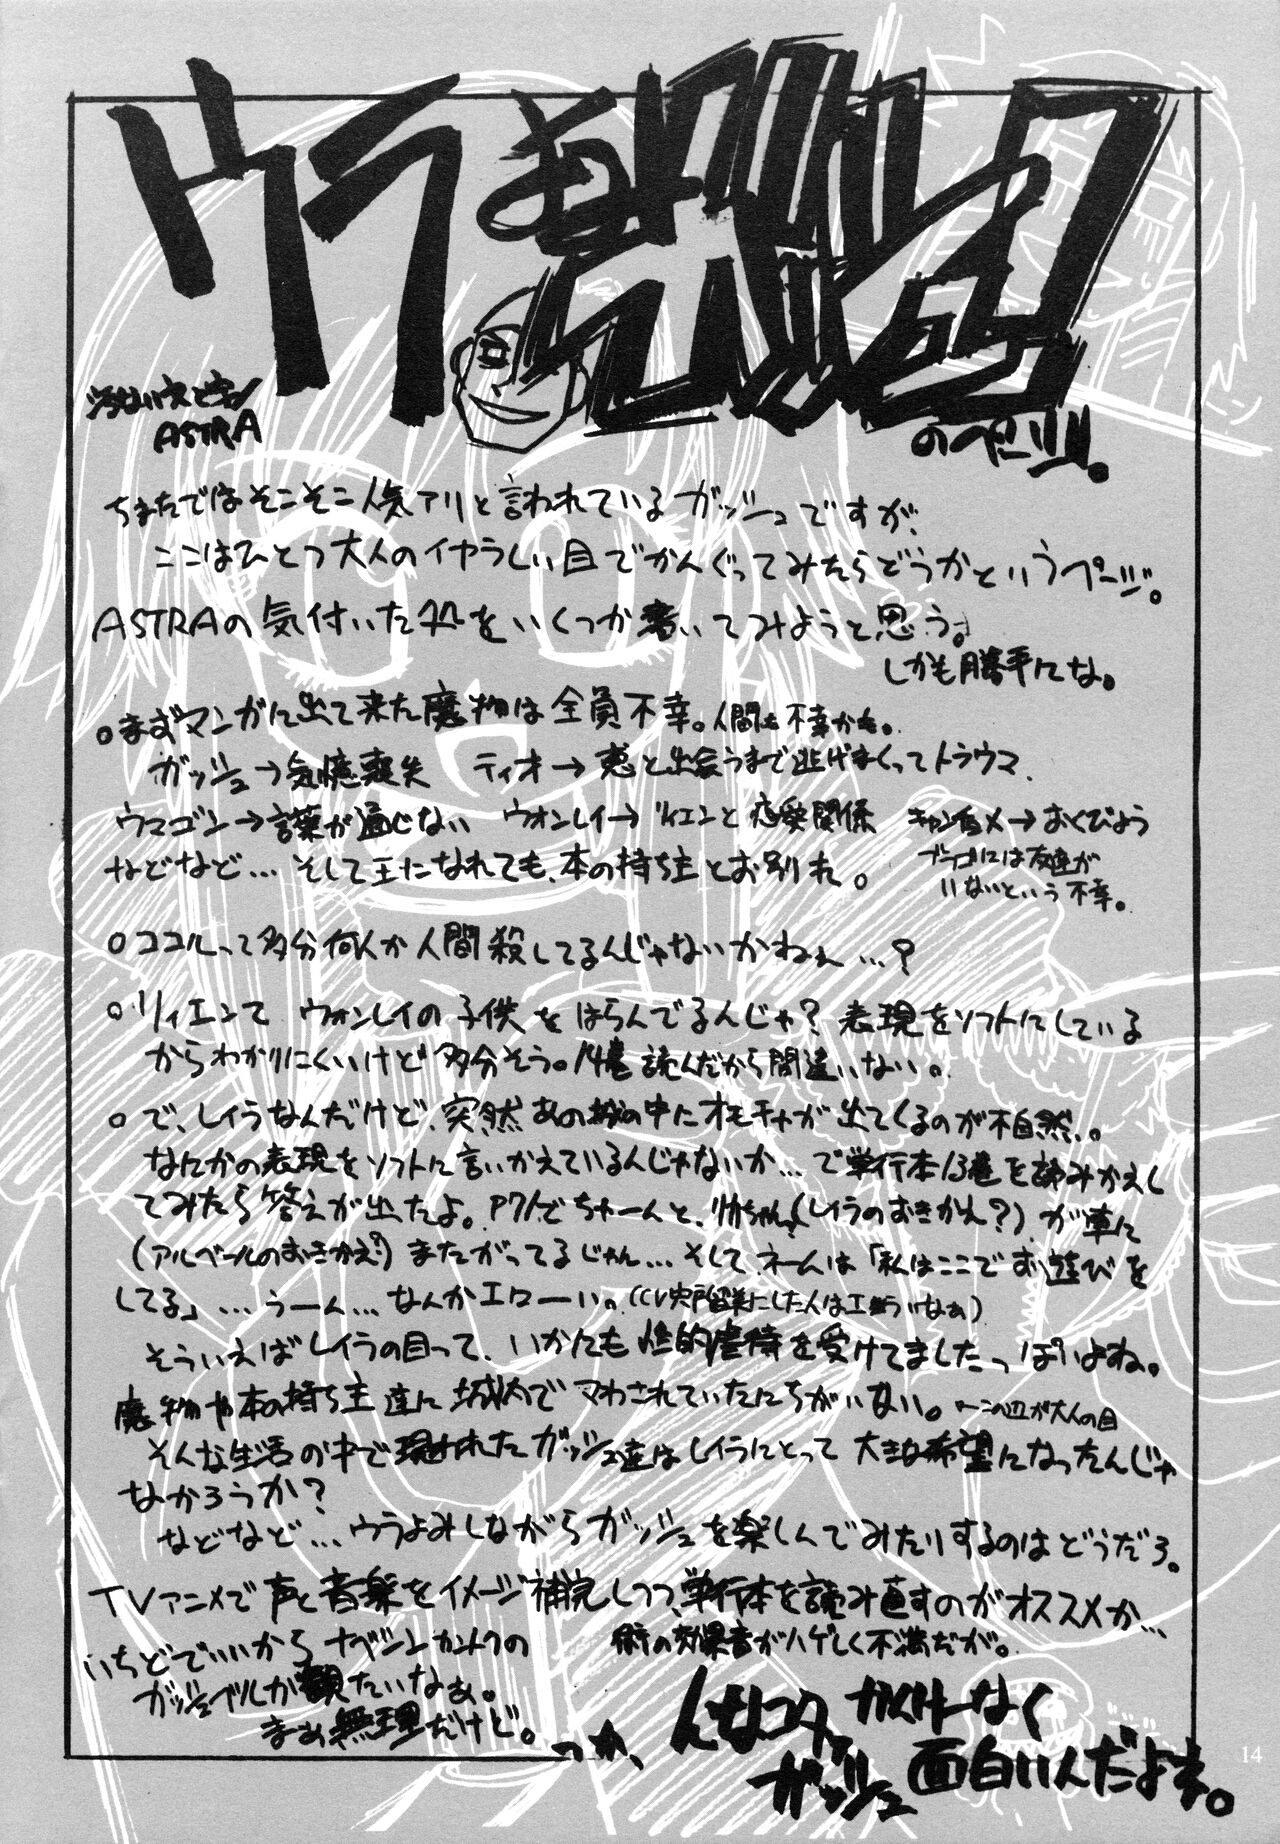 ウラ
ASTRA
のページ。
ちまたではそこそこ人気アリと言われているガッシュですが、
ここはひとつ大人のイヤらしい目でかんぐってみたらどうかというページ。
ASTRAの気付いた処をいくつか書いてみようと思う。
しかも勝手にな。
○まずマンガに出て来た魔物は全員不幸。人間も不幸かも。
ガッシュ→気憶喪失 ティオ→恵と出会うまで逃げまくってトラウマ
ウマゴン→言葉が通じない ウォンレイ→リィエンと恋愛関係 キャンチョメ→おくびょう
などなど…そして王になれても、本の持ち主とお別れ。
には友達が
いないという不幸。
○ココルって多分何人か人間殺してるんじゃないかねぇ…?
○リィエンて ウォンレイの子供をはらんでるんじゃ?表現をソフトにしている
からわかりにくいけど多分そう。14巻読んだから間違いない。
○で、レイラなんだけど、突然あの城の中にオモチャが出てくるのが不自然。
なにかの表現をソフトに言いかえているんじゃないか…で単行本13巻を読みかえし
てみたら答えが出たよ。P71でちゃーんと、(レイラのおきかえ?)が車に
(アルベールのおきかえ?)またがってるじゃん…そして、ネームは「私はここでお遊びを
してる」…うーん…なんかエローい。
そういえばレイラの目って、いかにも性的虐待を受けてましたっぽいよね。
魔物や本の持ち主達に城内でマわされていたにちがいない。←この辺が大人の目
そんな生活の中で現われたガッシュ達はレイラにとって大きな希望になったんじゃ
なかろうか?
などなど…ウラよみしながらガッシュを楽しんでみたりするのはどうだろ。
TVアニメで声と音楽をイメージ補完しつつ、単行本を読み直すのがオススメか…
術の効果音がハゲしく不満だが。
いちどでいいからナベシンカントクの
ガッシュベルが観たいなぁ。
まぁ無理だけど。
つか、んなコタァかんけーなく
ガッシュ面白いんだよネ。
14